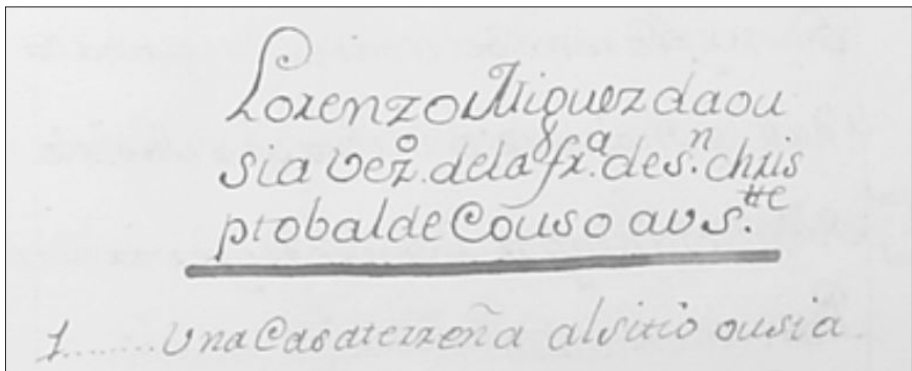 Lorenzo Miguez da ou
sia vez.º de la fr.ª de s.ⁿ chris
ptobal de Couso aus.ᵗᵉ
1........Una Casa terreña al sitio ousia